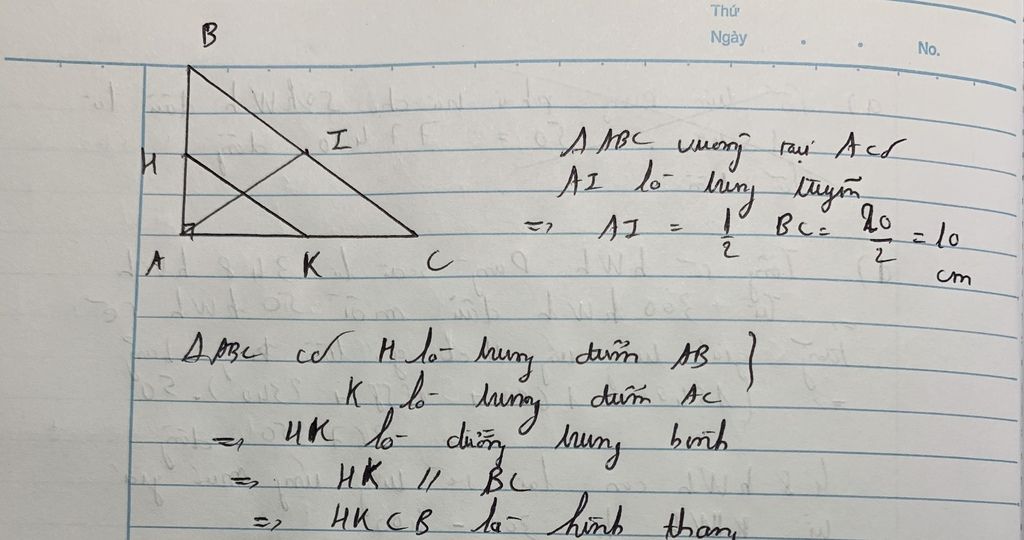 Thứ
Ngày . . No.
B
I
H
A K C
Δ ABC vuông tại A có
AI là trung tuyến
=> AI = 1/2 BC = 20/2 = 10
cm
Δ ABC có H là trung điểm AB }
K là trung điểm AC
=> HK là đường trung bình
=> HK // BC
=> HKCB là hình thang